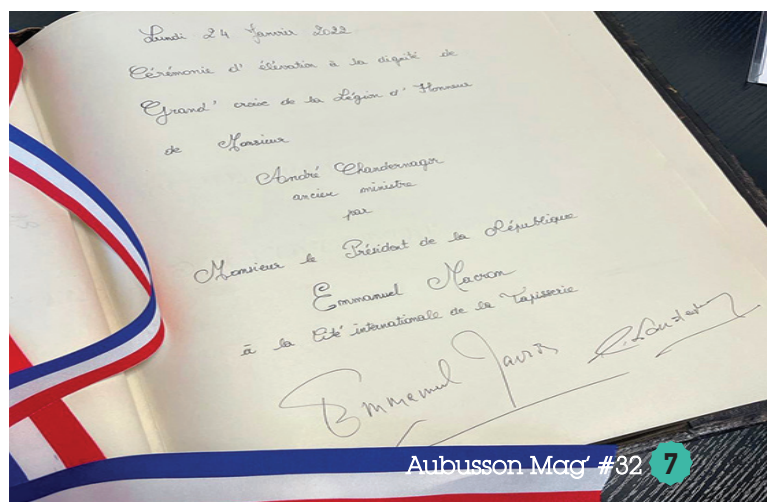 Lundi 24 Janvier 2022
Cérémonie d'élévation à la dignité de
Grand' croix de la Légion d'Honneur
de Monsieur
André Chandernagor
ancien ministre
par
Monsieur le Président de la République
Emmanuel Macron
à la Cité internationale de la Tapisserie
Emmanuel
Aubusson Mag' #32 7